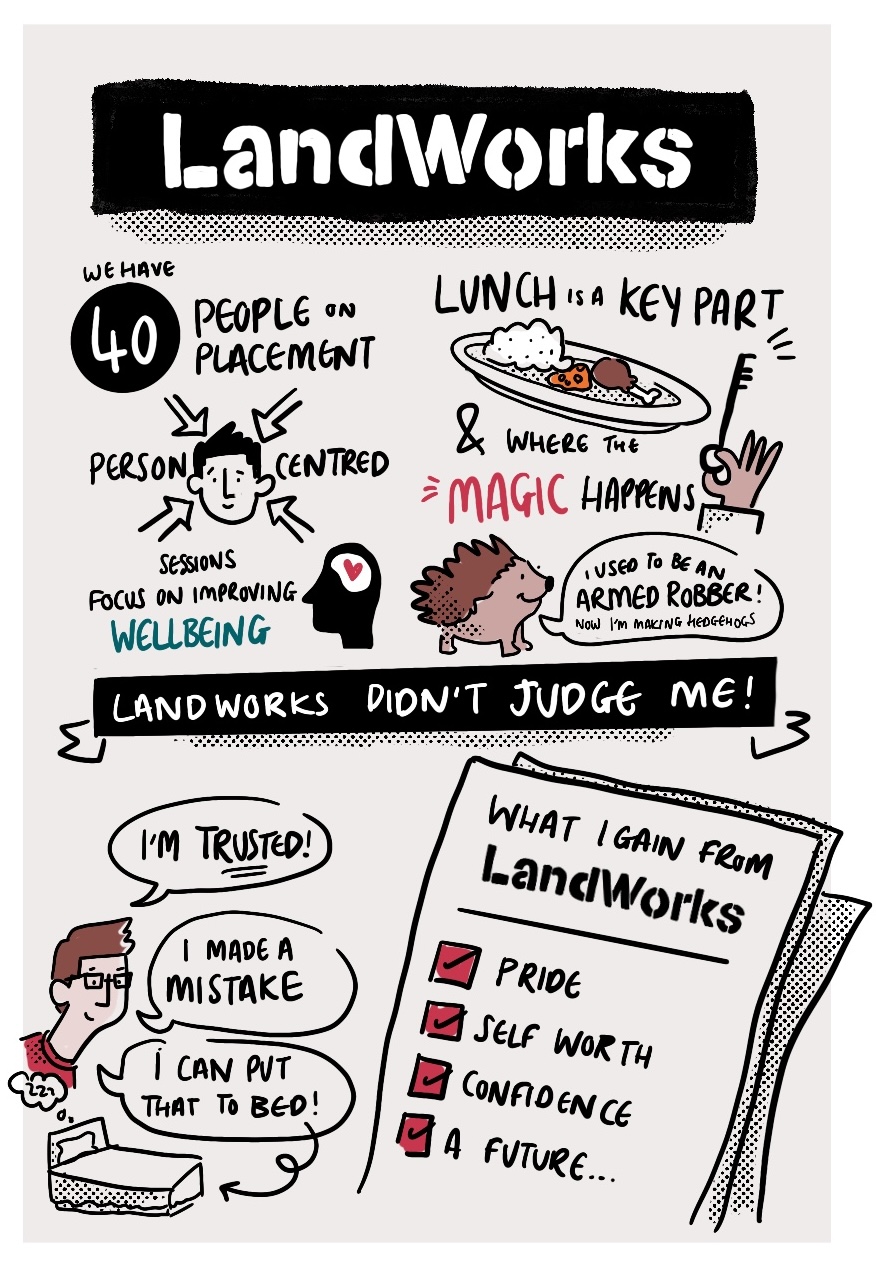 LandWorks
WE HAVE
40
PEOPLE ON
PLACEMENT
PERSON CENTRED
SESSIONS
FOCUS ON IMPROVING
WELLBEING
LUNCH IS A KEY PART
& WHERE THE
MAGIC HAPPENS
I USED TO BE AN
ARMED ROBBER!
NOW I'M MAKING HEDGEHOGS
LANDWORKS DIDN'T JUDGE ME!
I'M TRUSTED!
I MADE A
MISTAKE
I CAN PUT
THAT TO BED!
ZZZ
WHAT I GAIN FROM
LandWorks
PRIDE
SELF WORTH
CONFIDENCE
A FUTURE...